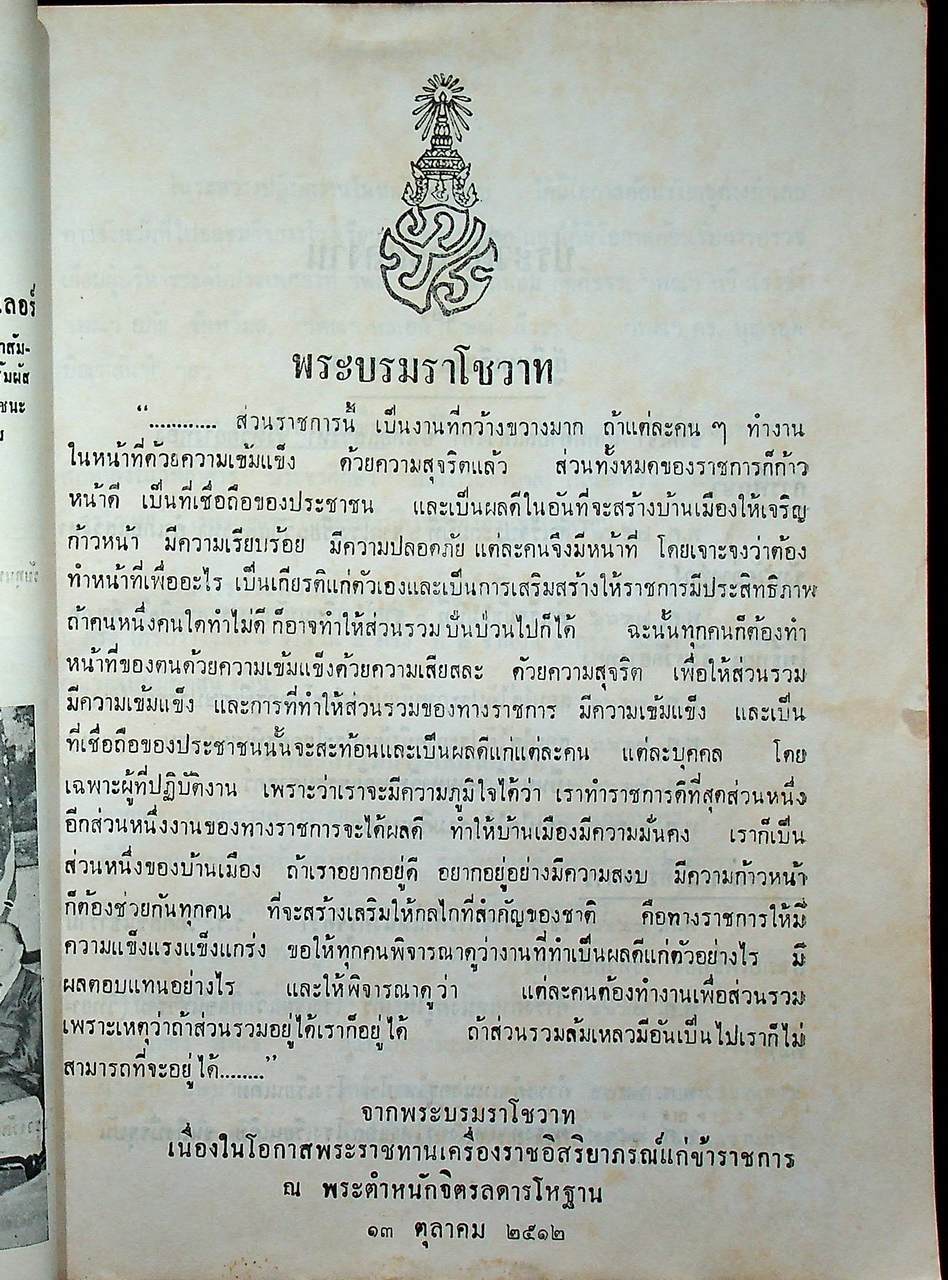 พระบรมราโชวาท
“............ ส่วนราชการนี้ เป็นงานที่กว้างขวางมาก ถ้าแต่ละคน ๆ ทำงาน
ในหน้าที่ด้วยความเข้มแข็ง ด้วยความสุจริตแล้ว ส่วนทั้งหมดของราชการก็ก้าว
หน้าดี เป็นที่เชื่อถือของประชาชน และเป็นผลดีในอันที่จะสร้างบ้านเมืองให้เจริญ
ก้าวหน้า มีความเรียบร้อย มีความปลอดภัย แต่ละคนจึงมีหน้าที่ โดยเจาะจงว่าต้อง
ทำหน้าที่เพื่ออะไร เป็นเกียรติแก่ตัวเองและเป็นการเสริมสร้างให้ราชการมีประสิทธิภาพ
ถ้าคนหนึ่งคนใดทำไม่ดี ก็อาจทำให้ส่วนรวม ปั่นป่วนไปก็ได้ ฉะนั้นทุกคนก็ต้องทำ
หน้าที่ของตนด้วยความเข้มแข็งด้วยความเสียสละ ด้วยความสุจริต เพื่อให้ส่วนรวม
มีความเข้มแข็ง และการที่ทำให้ส่วนรวมของทางราชการ มีความเข้มแข็ง และเป็น
ที่เชื่อถือของประชาชนนั้นจะสะท้อนและเป็นผลดีแก่แต่ละคน แต่ละบุคคล โดย
เฉพาะผู้ที่ปฏิบัติงาน เพราะว่าเราจะมีความภูมิใจได้ว่า เราทำราชการดีที่สุดส่วนหนึ่ง
อีกส่วนหนึ่งงานของทางราชการจะได้ผลดี ทำให้บ้านเมืองมีความมั่นคง เราก็เป็น
ส่วนหนึ่งของบ้านเมือง ถ้าเราอยากอยู่ดี อยากอยู่อย่างมีความสงบ มีความก้าวหน้า
ก็ต้องช่วยกันทุกคน ที่จะสร้างเสริมให้กลไกที่สำคัญของชาติ คือทางราชการให้มี
ความแข็งแรงแข็งแกร่ง ขอให้ทุกคนพิจารณาดูว่างานที่ทำเป็นผลดีแก่ตัวอย่างไร มี
ผลตอบแทนอย่างไร และให้พิจารณาดูว่า แต่ละคนต้องทำงานเพื่อส่วนรวม
เพราะเหตุว่าถ้าส่วนรวมอยู่ได้เราก็อยู่ได้ ถ้าส่วนรวมล้มเหลวมีอันเป็นไปเราก็ไม่
สามารถที่จะอยู่ได้........”
จากพระบรมราโชวาท
เนื่องในโอกาสพระราชทานเครื่องราชอิสริยาภรณ์แก่ข้าราชการ
ณ พระตำหนักจิตรลดารโหฐาน
๑๓ ตุลาคม ๒๕๑๒